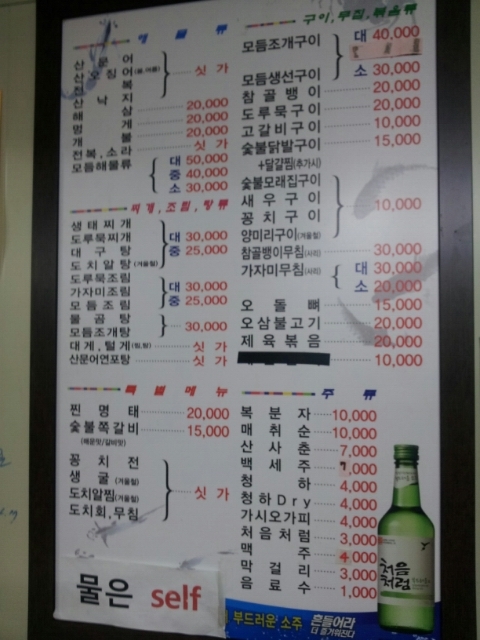 해 물 류
산 문 어
산 오 징 어(봄,여름)
전 복
산 낙 지
싯 가
해 삼 20,000
멍 게 20,000
개 불 20,000
전복,소라 싯 가
모듬해물류
대 50,000
중 40,000
소 30,000
찌개,조림,탕류
생태찌개
도루묵찌개
대 구 탕
도치알탕(겨울철)
대 30,000
중 25,000
도루묵조림
가자미조림
모듬조림
대 30,000
중 25,000
물 곰 탕
모듬조개탕
30,000
대게,털게(찜,탕) 싯 가
산문어연포탕 싯 가
특 별 메 뉴
찐 명 태 20,000
숯불쪽갈비 15,000
(매운맛/갈비맛)
꽁 치 전
생 굴(겨울철)
도치알찜(겨울철)
도치회,무침
싯 가
물은 self
구이,무침,볶음류
모듬조개구이
대 40,000
모듬생선구이 소 30,000
참 골 뱅 이 20,000
도루묵구이 20,000
고갈비구이 10,000
숯불닭발구이 15,000
+달걀찜(추가시)
숯불모래집구이
새 우 구 이
꽁 치 구 이
양미리구이(겨울철)
10,000
참골뱅이무침(사리) 30,000
가자미무침(사리)
대 30,000
소 20,000
오 돌 뼈 15,000
오삼불고기 20,000
제 육 볶 음 20,000
10,000
주 류
복 분 자 10,000
매 취 순 10,000
산 사 춘 7,000
백 세 주 7,000
청 하 4,000
청 하 D r y 4,000
가시오가피 4,000
처 음 처 럼 3,000
맥 주 4,000
막 걸 리 3,000
음 료 수 1,000
처음
처럼
부드러운 소주 흔들어라
더 즐거워진다